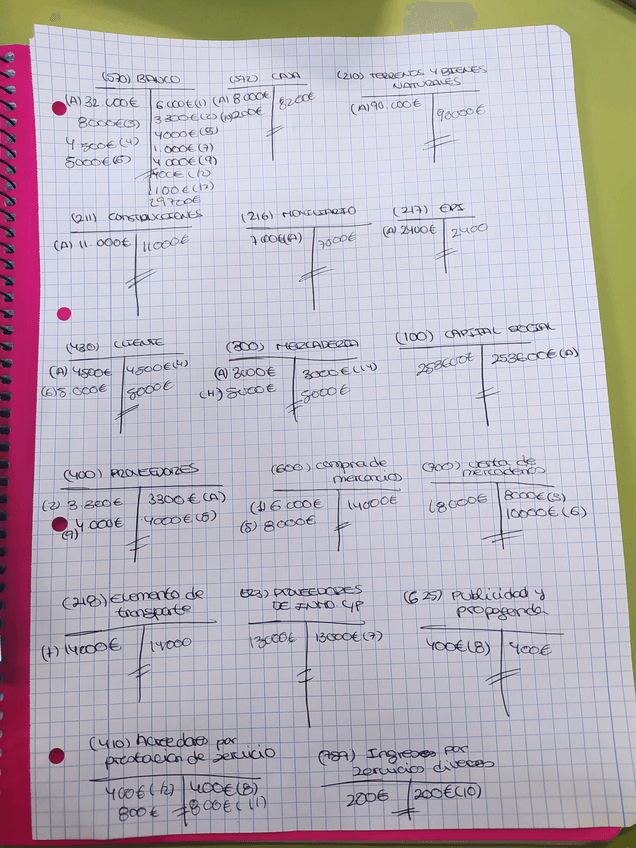 (570) BANCO
(A) 32.000€ 6000€(1)
8000€(3) 3300€(2)
4500€(4) 4000€(5)
5000€(6) 1.000€(7)
4000€(9)
400€(12)
1100€(13)
29700€
(572) CAJA
(A) 8000€ 8200€
(10)200€
(210) TERRENOS Y BIENES
NATURALES
(A) 90.000€ 90000€
(211) CONSTRUCCIONES
(A) 11.000€ 11000€
(216) MOBILIARIO
7000€(A) 7000€
(217) EPI
(A) 2400€ 2400
(430) CLIENTE
(A) 4500€ 4500€(4)
(6) 5.000€ 5000€
(300) MERCADERIA
(A) 3000€ 3000€(14)
(H) 5000€ 5000€
(100) CAPITAL SOCIAL
253600€ 253600€(A)
(400) PROVEEDORES
(2) 3.300€ 3300€(A)
(9) 4000€ 4000€(5)
(600) compra de
mercancias
(1) 6000€ 14000€
(5) 8000€
(700) venta de
mercaderias
18000€ 8000€(3)
10000€(6)
(218) Elemento de
transporte
(7) 14000€ 14000
523) PROVEEDORES
DE INMO C/P
13000€ 13000€(7)
(625) Publicidad y
propaganda
400€(8) 400€
(410) Acreedores por
prestacion de servicio
400€(12) 400€(8)
800€ 800€(11)
(759) Ingresos por
servicios diversos
200€ 200€(10)